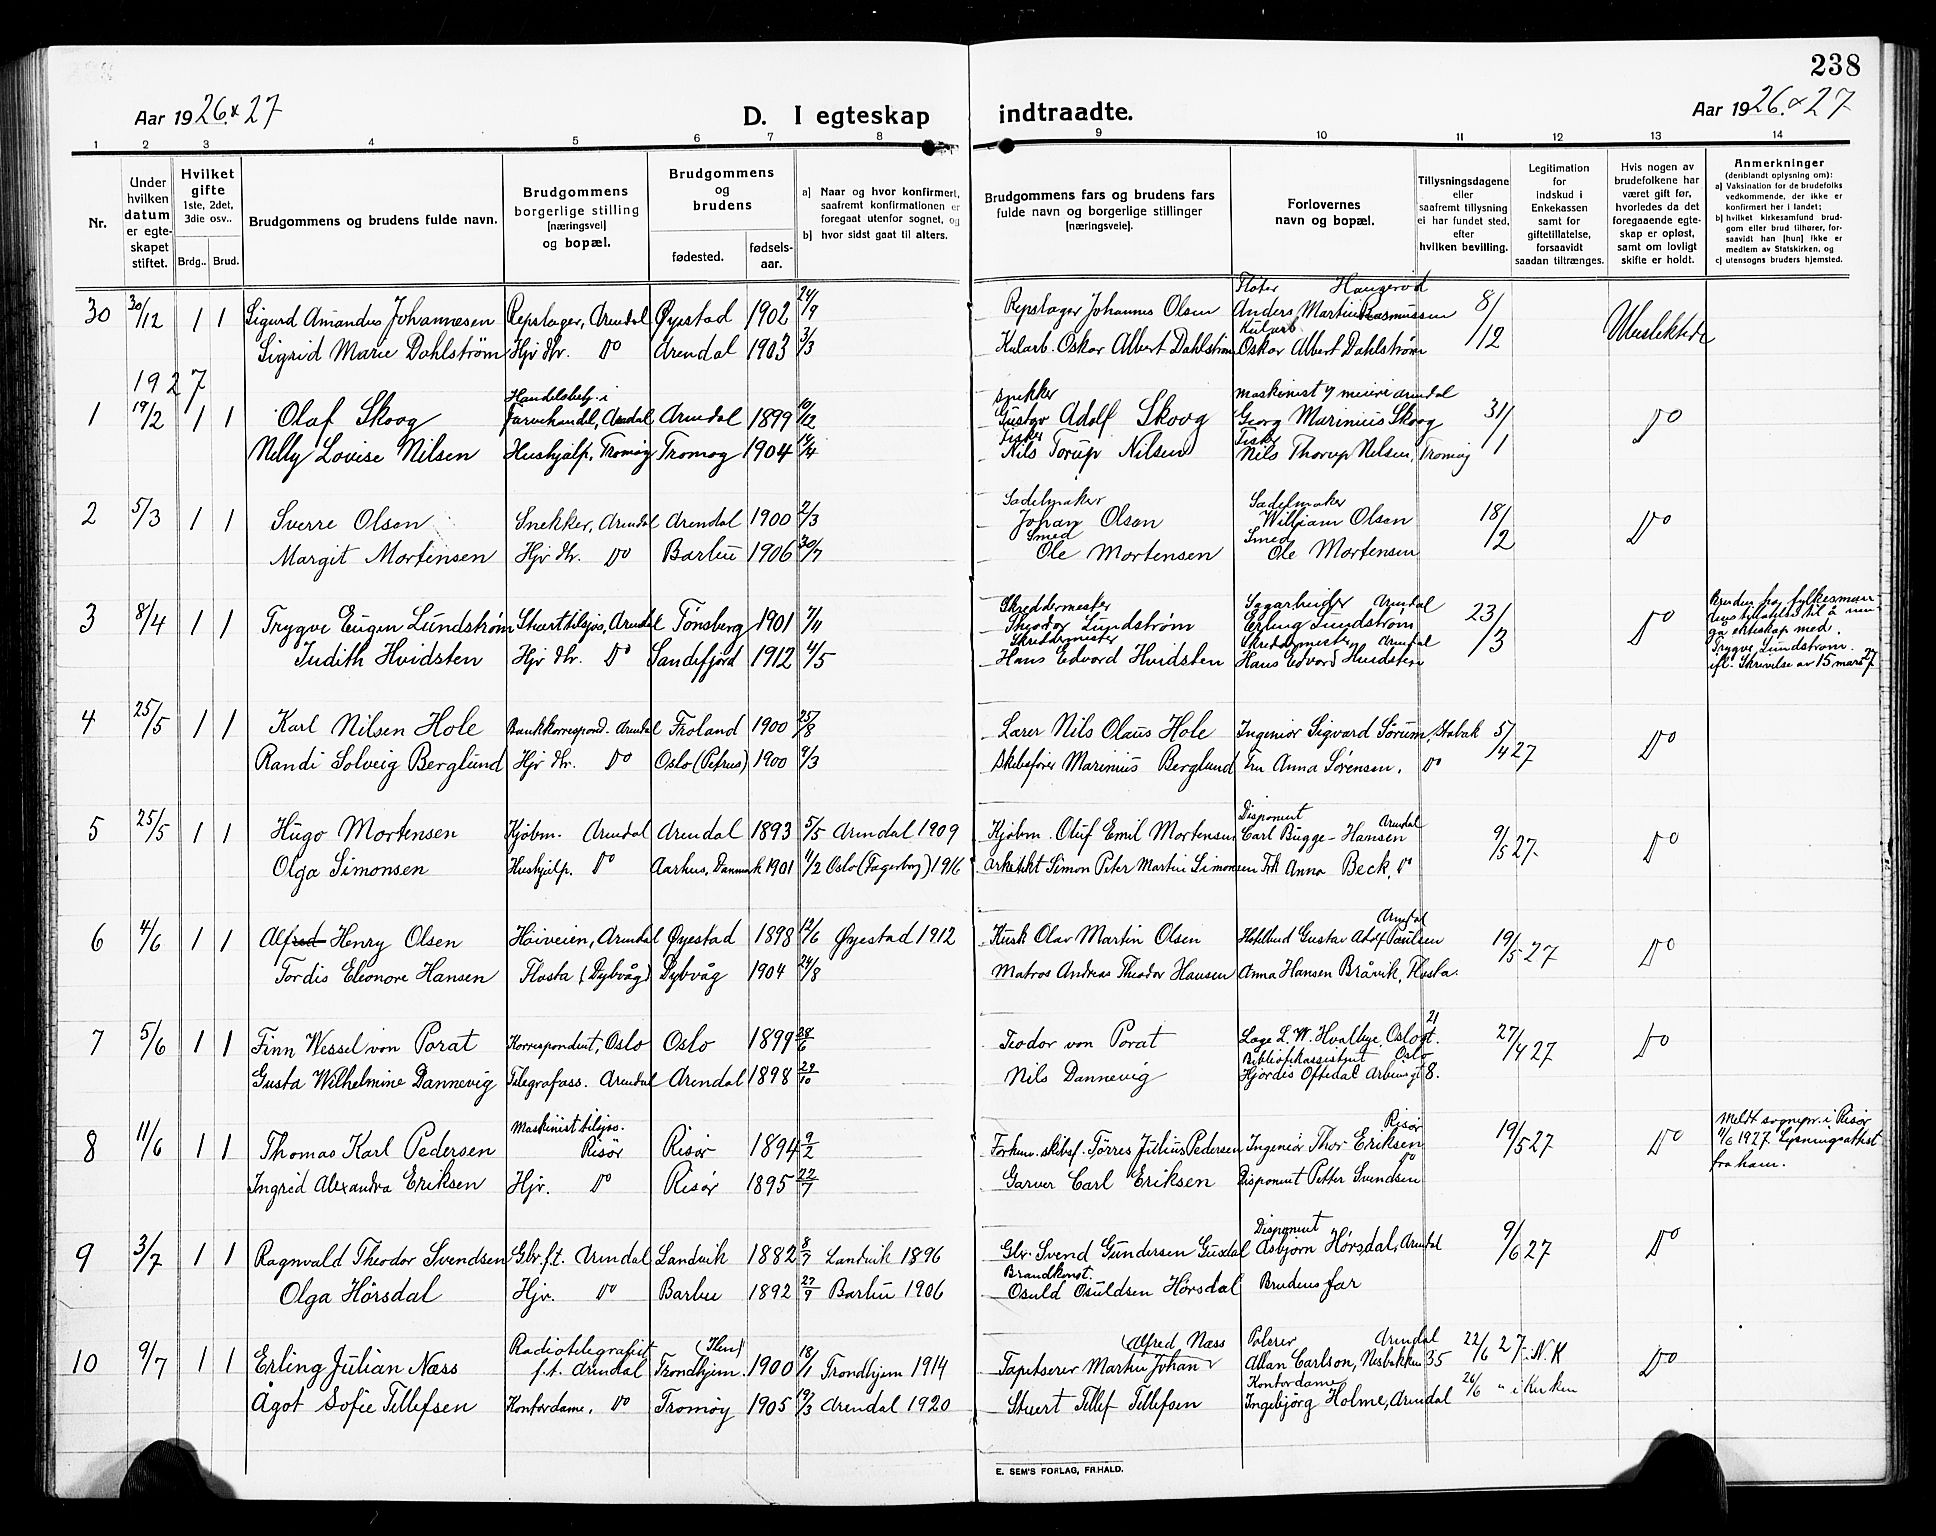 238
Aar 1926 & 27 D. I egteskap indtraadte. Aar 1926 & 27
1 2 3 4 5 6 7 8 9 10 11 12 13 14
Nr.
Under hvilken datum er egteskapet stiftet.
Hvilket gifte 1ste, 2det, 3die osv..
Brdg.. Brud.
Brudgommens og brudens fulde navn.
Brudgommens borgerlige stilling [næringsvei] og bopæl.
Brudgommens og brudens
fødested. fødsels-aar.
a) Naar og hvor konfirmert, saafremt konfirmationen er foregaat utenfor sognet, og
b) hvor sidst gaat til alters.
Brudgommens fars og brudens fars fulde navn og borgerlige stillinger [næringsveie].
Forlovernes navn og bopæl.
Tillysningsdagene eller saafremt tillysning ei har fundet sted, efter hvilken bevilling.
Legitimation for indskud i Enkekassen samt for giftetillatelse, forsaavidt saadan tiltrænges.
Hvis nogen av brudefolkene har været gift før, hvorledes da det foregaaende egteskap er opløst, samt om lovligt skifte er holdt.
Anmerkninger (deriblandt oplysning om): a) Vaksination for de brudefolks vedkommende, der ikke er konfirmert her i landet; b) hvilket kirkesamfund brudgom eller brud tilhører, forsaavidt han [hun] ikke er medlem av Statskirken, og c) utensogns bruders hjemsted.
30 30/12 1 1 Sigurd Amandus Johannesen Repslager, Arendal Øyestad 1902 24/9 Repslager Johannes Olsen Fløter Anders Martin Rasmussen 8/12 Ubeslektede
Sigrid Marie Dahlstrøm Hjv. dtr. Do Arendal 1903 3/3 Kularb. Oskar Albert Dahlstrøm Kularb. Oskar Albert Dahlstrøm
1927
1 19/2 1 1 Olaf Skoog Handelsbetj. i Farvehandel, Arendal Arendal 1899 10/12 Snekker Gustav Adolf Skoog Maskinist v/ meieri Arendal Georg Marinius Skoog 31/1 Do
Nelly Lovise Nilsen Hushjælp, Tromøy Tromøy 1904 14/4 Fisker Nils Torup Nilsen Fisker Nils Thorup Nilsen, Tromøy
2 5/3 1 1 Sverre Olsen Snekker, Arendal Arendal 1900 2/3 Sadelmaker Johan Olsen Sadelmaker William Olsen 18/2 Do
Margit Mortensen Hjv. dtr. Do Barbu 1906 30/7 Smed Ole Mortensen Smed Ole Mortensen
3 8/4 1 1 Trygve Eugen Lundstrøm Stuert tilsjøs, Arendal Tønsberg 1901 7/11 Skreddermester Theodor Lundstrøm Sagarbeider Arendal Erling Lundstrøm 23/3 Do
Judith Hvidsten Hjv. dtr. Do Sandefjord 1912 4/5 Skreddermester Hans Edvard Hvidsten Skreddermester Arendal Hans Edvard Hvidsten
Bruden har fylkesmannens tillatelse til å inngå ekteskap med Trygve Lundstrøm. ifl. Skrivelse av 15 mars 27
4 25/5 1 1 Karl Nilsen Hole Bankkorrespond. Arendal Froland 1900 25/8 Lærer Nils Olaus Hole Ingeniør Sigvard Sørum, Stabæk 5/4 27 Do
Randi Solveig Berglund Hjv. dtr. Do Oslo (Petrus) 1900 9/3 Skibsfører Marinius Berglund Fru Anna Sørensen, Do
5 25/5 1 1 Hugo Mortensen Kjøbm. Arendal Arendal 1893 5/5 Arendal 1909 Kjøbm. Oluf Emil Mortensen Disponent Arendal Carl Bugge-Hansen 9/5 27. Do
Olga Simonsen Hushjælp. Do Aarhus, Danmark 1901 11/2 Oslo (Fagerborg) 1916 Arkitekt Simon Peter Martin Simonsen Frk Anna Beck, Do
6 4/6 1 1 Alfred Henry Olsen Høiveien, Arendal Øyestad 1898 12/6 Øyestad 1912 Kusk Olav Martin Olsen Hotelbud Gustav Adolf Paulsen Arendal 19/5 27 Do
Tordis Eleonore Hansen Flosta (Dybvåg) Dybvåg 1904 24/8 Matros Andreas Theodor Hansen Anna Hansen Bråvik, Flosta.
7 5/6 1 1 Finn Wessel von Porat Korrespondent, Oslo Oslo 1899 28/6 Teodor von Porat Lage L. W. Hvalbye, Oslogt. 21 27/4 27 Do
Gusta Wilhelmine Dannevig Telegrafass. Arendal Arendal 1898 29/10 Nils Dannevig Bibliotekassistent Oslo Hjørdis Oftedal Arbiensgt 8.
8 11/6 1 1 Thomas Karl Pedersen Maskinist tilsjøs. Risør Risør 1894 9/2 Forhenv. skibsf. Tørres Julius Pedersen Ingeniør Thor Eriksen Risør 19/5 27 Do
Ingrid Alexandra Eriksen Hjv. Do Risør 1895 22/7 Garver Carl Eriksen Disponent Petter Svendsen Do
Meldt sognepr. i Risør 11/6 1927. Lysningsattest fra ham.
9 3/7 1 1 Ragnvald Theodor Svendsen Gbr. f.t. Arendal Landvik 1882 8/7 Landvik 1896 Gbr. Svend Gundersen Gusdal Disponent Asbjørn Hørsdal, Arendal 9/6 27 Do
Olga Hørsdal Hjv. Do Barbu 1892 27/9 Barbu 1906 Brandkonst. Osuld Osuldsen Hørsdal Brudens far
10 9/7 1 1 Erling Julian Næss Radiotelegrafist f.t. Arendal (Ilen) Trondhjem. 1900 18/1 Trondhjem 1914 Tapetserer Martin Johan (Alfred Næss Polerer Arendal Allan Carlson, Nesbekken 35 22/6 27. i N.K Do
Ågot Sofie Tellefsen Kontordame, Do Tromøy 1905 19/3 Arendal 1920 Stuert Tellef Tellefsen Kontordame Ingebjørg Holme, Arendal 26/6 " i Kirken
E. SEM'S FORLAG, FR.HALD.